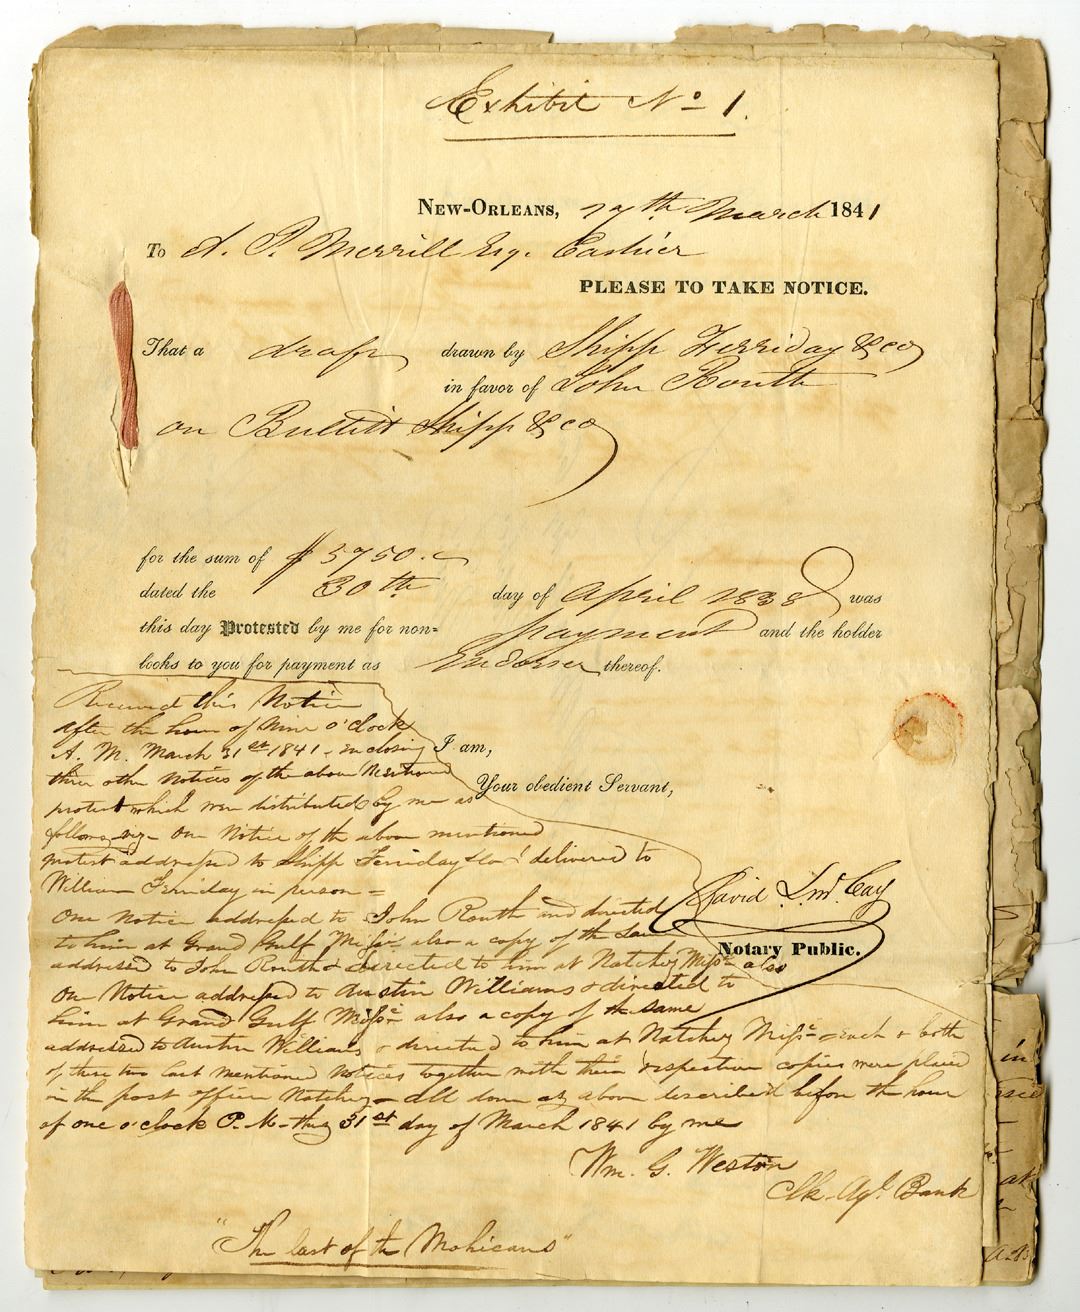 Exhibit No 1.
New-Orleans, 27th March 1841
To A. P. Merrill Esq. Cashier
PLEASE TO TAKE NOTICE.
That a draft drawn by Shipp Ferriday & co
in favor of John Routh
on Bullitt Shipp & co
for the sum of $ 5750.
dated the 30th day of April 1838 was
this day Protested by me for non-payment and the holder
looks to you for payment as Endorser thereof.
I am,
Your obedient Servant,
David L. McCay
Notary Public.
Received this Notice
after the hour of Nine o'clock
A. M. March 31st 1841 - enclosing
three other Notices of the above mentioned
protest which were distributed by me as
follows, viz - One Notice of the above mentioned
protest addressed to Shipp Ferriday & Co delivered to
William Ferriday in person =
One Notice addressed to John Routh and directed
to him at Grand Gulf Missi. also a copy of the same
addressed to John Routh & directed to him at Natchez Missi. also
One Notice addressed to Austin Williams & directed to
him at Grand Gulf Missi. also a copy of the same
addressed to Austin Williams & directed to him at Natchez Missi. each & both
of these two last mentioned Notices together with their respective copies were placed
in the post office Natchez - All done as above described before the hour
of one o'clock P. M. this 31st day of March 1841 by me
Wm. G. Weston
Clk. Agl. Bank
"The last of the Mohicans"